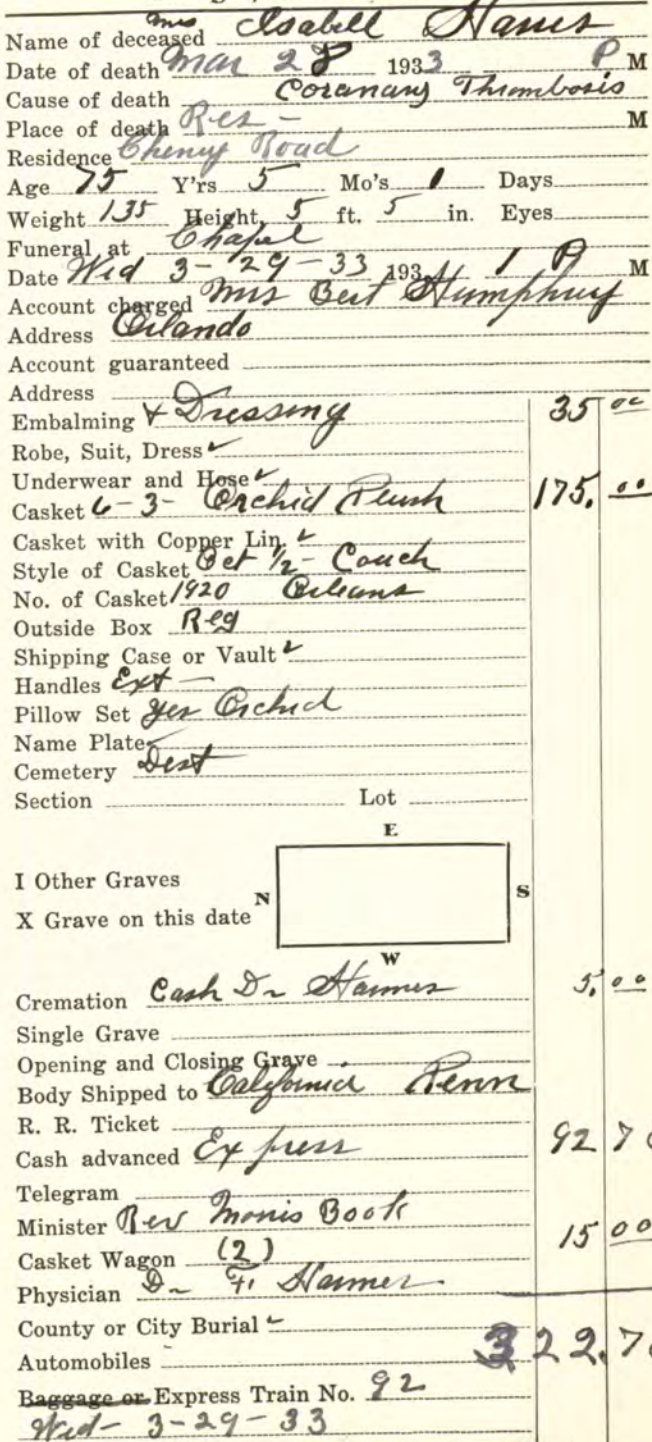 Name of deceased Mrs Isabell Hanes
Date of death Mar 28 1933 P M
Cause of death Coranary Thrombosis
Place of death Res - M
Residence Cheney Road
Age 75 Y'rs 5 Mo's 1 Days
Weight 135 Height, 5 ft. 5 in. Eyes
Funeral at Chapel
Date Wed 3-29-33 193 1 P M
Account charged Mrs Bert Humphrey
Address Orlando
Account guaranteed
Address
Embalming & Dressing 35 00
Robe, Suit, Dress
Underwear and Hose
Casket 6-3- Orchid Plush 175. 00
Casket with Copper Lin.
Style of Casket Oct 1/2 - Couch
No. of Casket 1920 Orleans
Outside Box Reg
Shipping Case or Vault
Handles Ext -
Pillow Set yes Orchid
Name Plate
Cemetery Dest
Section Lot
E
I Other Graves
N S
X Grave on this date
W
Cremation Cash Dr Hanner 5. 00
Single Grave
Opening and Closing Grave
Body Shipped to California Penn
R. R. Ticket
Cash advanced Express 92 70
Telegram
Minister Rev Morris Book
Casket Wagon (2) 15 00
Physician Dr
County or City Burial
Automobiles 322.70
Baggage or Express Train No. 92
Wed - 3-29-33